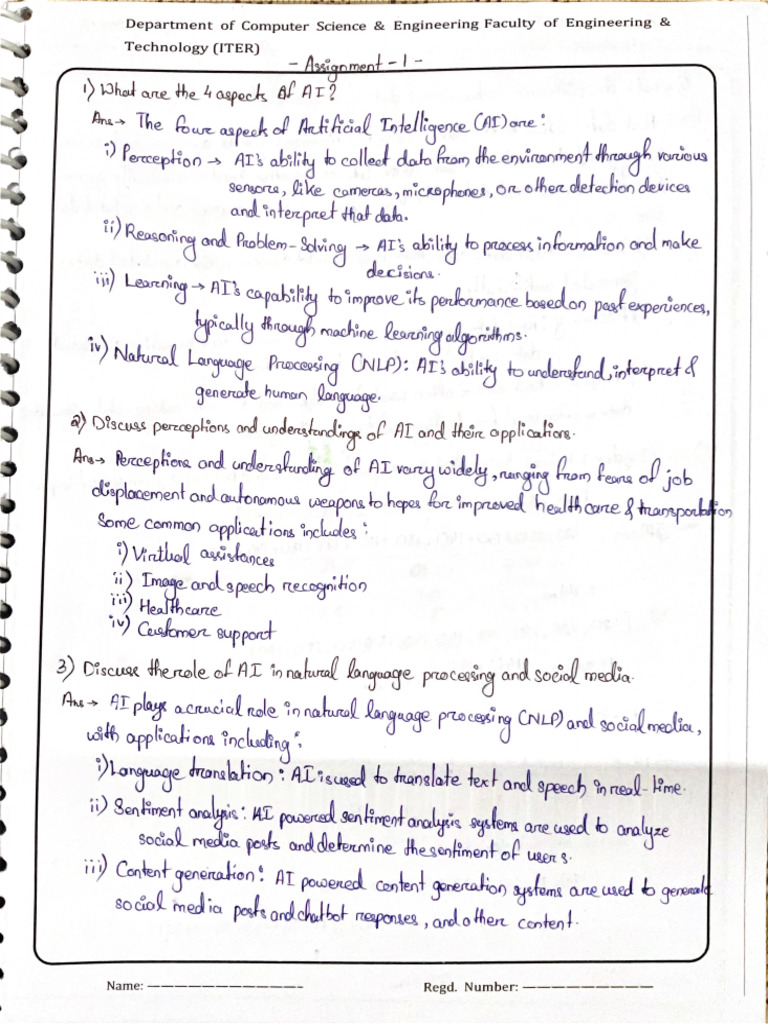 Department of Computer Science & Engineering Faculty of Engineering &
Technology (ITER)
- Assignment - 1 -
1) What are the 4 aspects of AI?
Ans → The four aspect of Artificial Intelligence (AI) are:
i) Perception → AI's ability to collect data from the environment through various
sensors, like cameras, microphones, or other detection devices
and interpret that data.
ii) Reasoning and Problem-Solving → AI's ability to process, information and make
decisions.
iii) Learning → AI's capability to improve its performance based on past experiences,
typically through machine learning algorithms.
iv) Natural Language Processing (NLP): AI's ability to understand, interpret &
generate human language.
2) Discuss perceptions and understandings of AI and their applications.
Ans → Perceptions and understanding of AI vary widely, ranging from fears of job
displacement and autonomous weapons to hopes for improved healthcare & transportation
Some common applications includes:
i) Virtual assistances
ii) Image and speech recognition
iii) Healthcare
iv) Customer support
3) Discuss the role of AI in natural language processing and social media.
Ans → AI plays a crucial role in natural language processing (NLP) and social media,
with applications including:
i) Language translation: AI is used to translate text and speech in real-time.
ii) Sentiment analysis: AI powered sentiment analysis systems are used to analyze
social media posts and determine the sentiment of users.
iii) Content generation: AI powered content generation systems are used to generate
social media posts and chatbot responses, and other content.
Name: ————————————
Regd. Number: ——————————